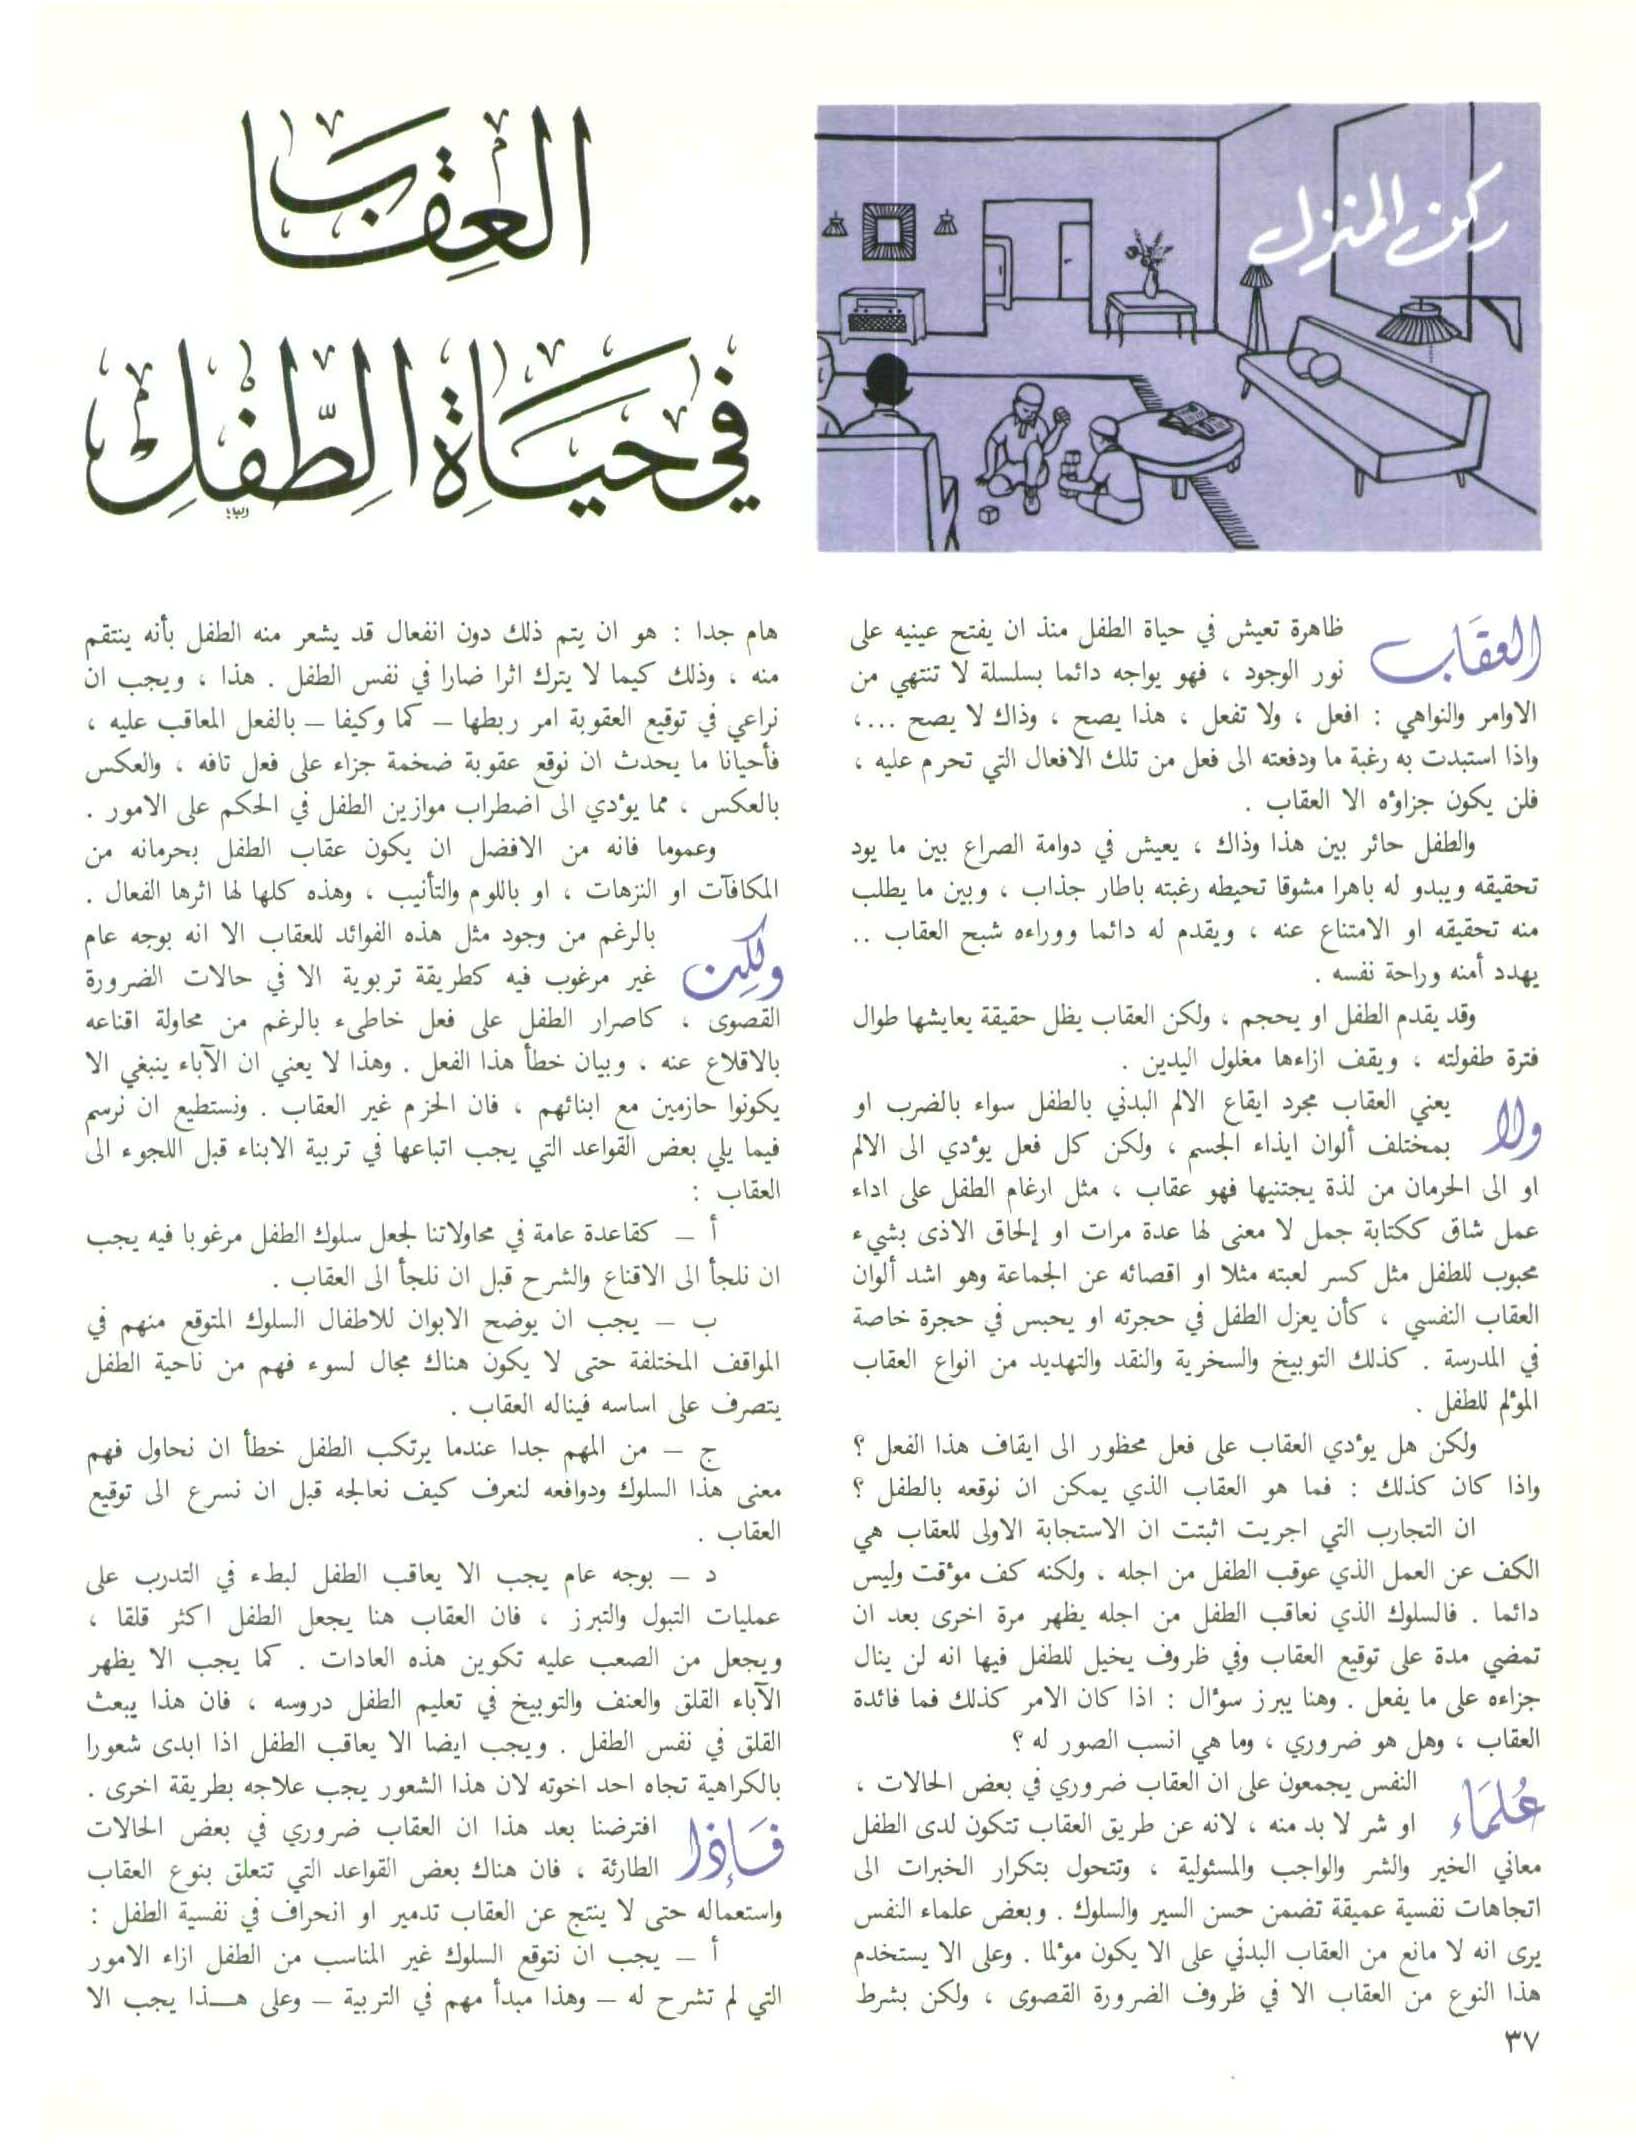 ركن المنزل
العقاب
في حياة الطفل
العقاب ظاهرة تعيش في حياة الطفل منذ ان يفتح عينيه على
نور الوجود ، فهو يواجه دائما بسلسلة لا تنتهي من
الاوامر والنواهي : افعل ، ولا تفعل ، هذا يصح ، وذاك لا يصح ...،
واذا استبدت به رغبة ما ودفعته الى فعل من تلك الافعال التي تحرم عليه ،
فلن يكون جزاؤه الا العقاب .
والطفل حائر بين هذا وذاك ، يعيش في دوامة الصراع بين ما يود
تحقيقه ويبدو له باهرا مشوقا تحيطه رغبته باطار جذاب ، وبين ما يطلب
منه تحقيقه او الامتناع عنه ، ويقدم له دائما ووراءه شبح العقاب ..
يهدد أمنه وراحة نفسه .
وقد يقدم الطفل او يحجم ، ولكن العقاب يظل حقيقة يعايشها طوال
فترة طفولته ، ويقف ازاءها مغلول اليدين .
ولا يعني العقاب مجرد ايقاع الالم البدني بالطفل سواء بالضرب او
بمختلف ألوان ايذاء الجسم ، ولكن كل فعل يؤدي الى الالم
او الى الحرمان من لذة يجتنيها فهو عقاب ، مثل ارغام الطفل على اداء
عمل شاق ككتابة جمل لا معنى لها عدة مرات او إلحاق الاذى بشيء
محبوب للطفل مثل كسر لعبته مثلا او اقصائه عن الجماعة وهو اشد ألوان
العقاب النفسي ، كأن يعزل الطفل في حجرته او يحبس في حجرة خاصة
في المدرسة . كذلك التوبيخ والسخرية والنقد والتهديد من انواع العقاب
المؤلم للطفل .
ولكن هل يؤدي العقاب على فعل محظور الى ايقاف هذا الفعل ؟
واذا كان كذلك : فما هو العقاب الذي يمكن ان نوقعه بالطفل ؟
ان التجارب التي اجريت اثبتت ان الاستجابة الاولى للعقاب هي
الكف عن العمل الذي عوقب الطفل من اجله ، ولكنه كف مؤقت وليس
دائما . فالسلوك الذي نعاقب الطفل من اجله يظهر مرة اخرى بعد ان
تمضي مدة على توقيع العقاب وفي ظروف يخيل للطفل فيها انه لن ينال
جزاءه على ما يفعل . وهنا يبرز سؤال : اذا كان الامر كذلك فما فائدة
العقاب ، وهل هو ضروري ، وما هي انسب الصور له ؟
علماء النفس يجمعون على ان العقاب ضروري في بعض الحالات ،
او شر لا بد منه ، لانه عن طريق العقاب تتكون لدى الطفل
معاني الخير والشر والواجب والمسئولية ، وتتحول بتكرار الخبرات الى
اتجاهات نفسية عميقة تضمن حسن السير والسلوك . وبعض علماء النفس
يرى انه لا مانع من العقاب البدني على الا يكون مؤلما . وعلى الا يستخدم
هذا النوع من العقاب الا في ظروف الضرورة القصوى ، ولكن بشرط
هام جدا : هو ان يتم ذلك دون انفعال قد يشعر منه الطفل بأنه ينتقم
منه ، وذلك كيما لا يترك اثرا ضارا في نفس الطفل . هذا ، ويجب ان
نراعي في توقيع العقوبة امر ربطها – كما وكيفا – بالفعل المعاقب عليه ،
فأحيانا ما يحدث ان نوقع عقوبة ضخمة جزاء على فعل تافه ، والعكس
بالعكس ، مما يؤدي الى اضطراب موازين الطفل في الحكم على الامور .
وعموما فانه من الافضل ان يكون عقاب الطفل بحرمانه من
المكافآت او النزهات ، او باللوم والتأنيب ، وهذه كلها لها اثرها الفعال .
ولكن بالرغم من وجود مثل هذه الفوائد للعقاب الا انه بوجه عام
غير مرغوب فيه كطريقة تربوية الا في حالات الضرورة
القصوى ، كاصرار الطفل على فعل خاطىء بالرغم من محاولة اقناعه
بالاقلاع عنه ، وبيان خطأ هذا الفعل . وهذا لا يعني ان الآباء ينبغي الا
يكونوا حازمين مع ابنائهم ، فان الحزم غير العقاب . ونستطيع ان نرسم
فيما يلي بعض القواعد التي يجب اتباعها في تربية الابناء قبل اللجوء الى
العقاب :
أ – كقاعدة عامة في محاولاتنا لجعل سلوك الطفل مرغوبا فيه يجب
ان نلجأ الى الاقناع والشرح قبل ان نلجأ الى العقاب .
ب – يجب ان يوضح الابوان للاطفال السلوك المتوقع منهم في
المواقف المختلفة حتى لا يكون هناك مجال لسوء فهم من ناحية الطفل
يتصرف على اساسه فيناله العقاب .
ج – من المهم جدا عندما يرتكب الطفل خطأ ان نحاول فهم
معنى هذا السلوك ودوافعه لنعرف كيف نعالجه قبل ان نسرع الى توقيع
العقاب .
د – بوجه عام يجب الا يعاقب الطفل لبطء في التدرب على
عمليات التبول والتبرز ، فان العقاب هنا يجعل الطفل اكثر قلقا ،
ويجعل من الصعب عليه تكوين هذه العادات . كما يجب الا يظهر
الآباء القلق والعنف والتوبيخ في تعليم الطفل دروسه ، فان هذا يبعث
القلق في نفس الطفل . ويجب ايضا الا يعاقب الطفل اذا ابدى شعورا
بالكراهية تجاه احد اخوته لان هذا الشعور يجب علاجه بطريقة اخرى .
فإذا افترضنا بعد هذا ان العقاب ضروري في بعض الحالات
الطارئة ، فان هناك بعض القواعد التي تتعلق بنوع العقاب
واستعماله حتى لا ينتج عن العقاب تدمير او انحراف في نفسية الطفل :
أ – يجب ان نتوقع السلوك غير المناسب من الطفل ازاء الامور
التي لم تشرح له – وهذا مبدأ مهم في التربية – وعلى هـذا يجب الا
٣٧